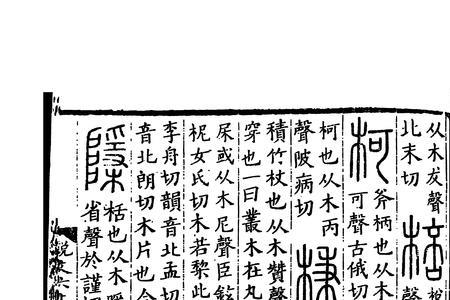 从木犮聲
北末切
棓
柯
斧柄也从木
可聲古俄切
柯也从木丙
聲陂病切
積竹杖也从木贊聲
穿也一曰叢木在丸
屎或从木尼聲臣鉉
柅女氏切木若棃此
李舟切韻音北孟切
音北朗切木片也今
檃
栝也从木隱
省聲於謹切